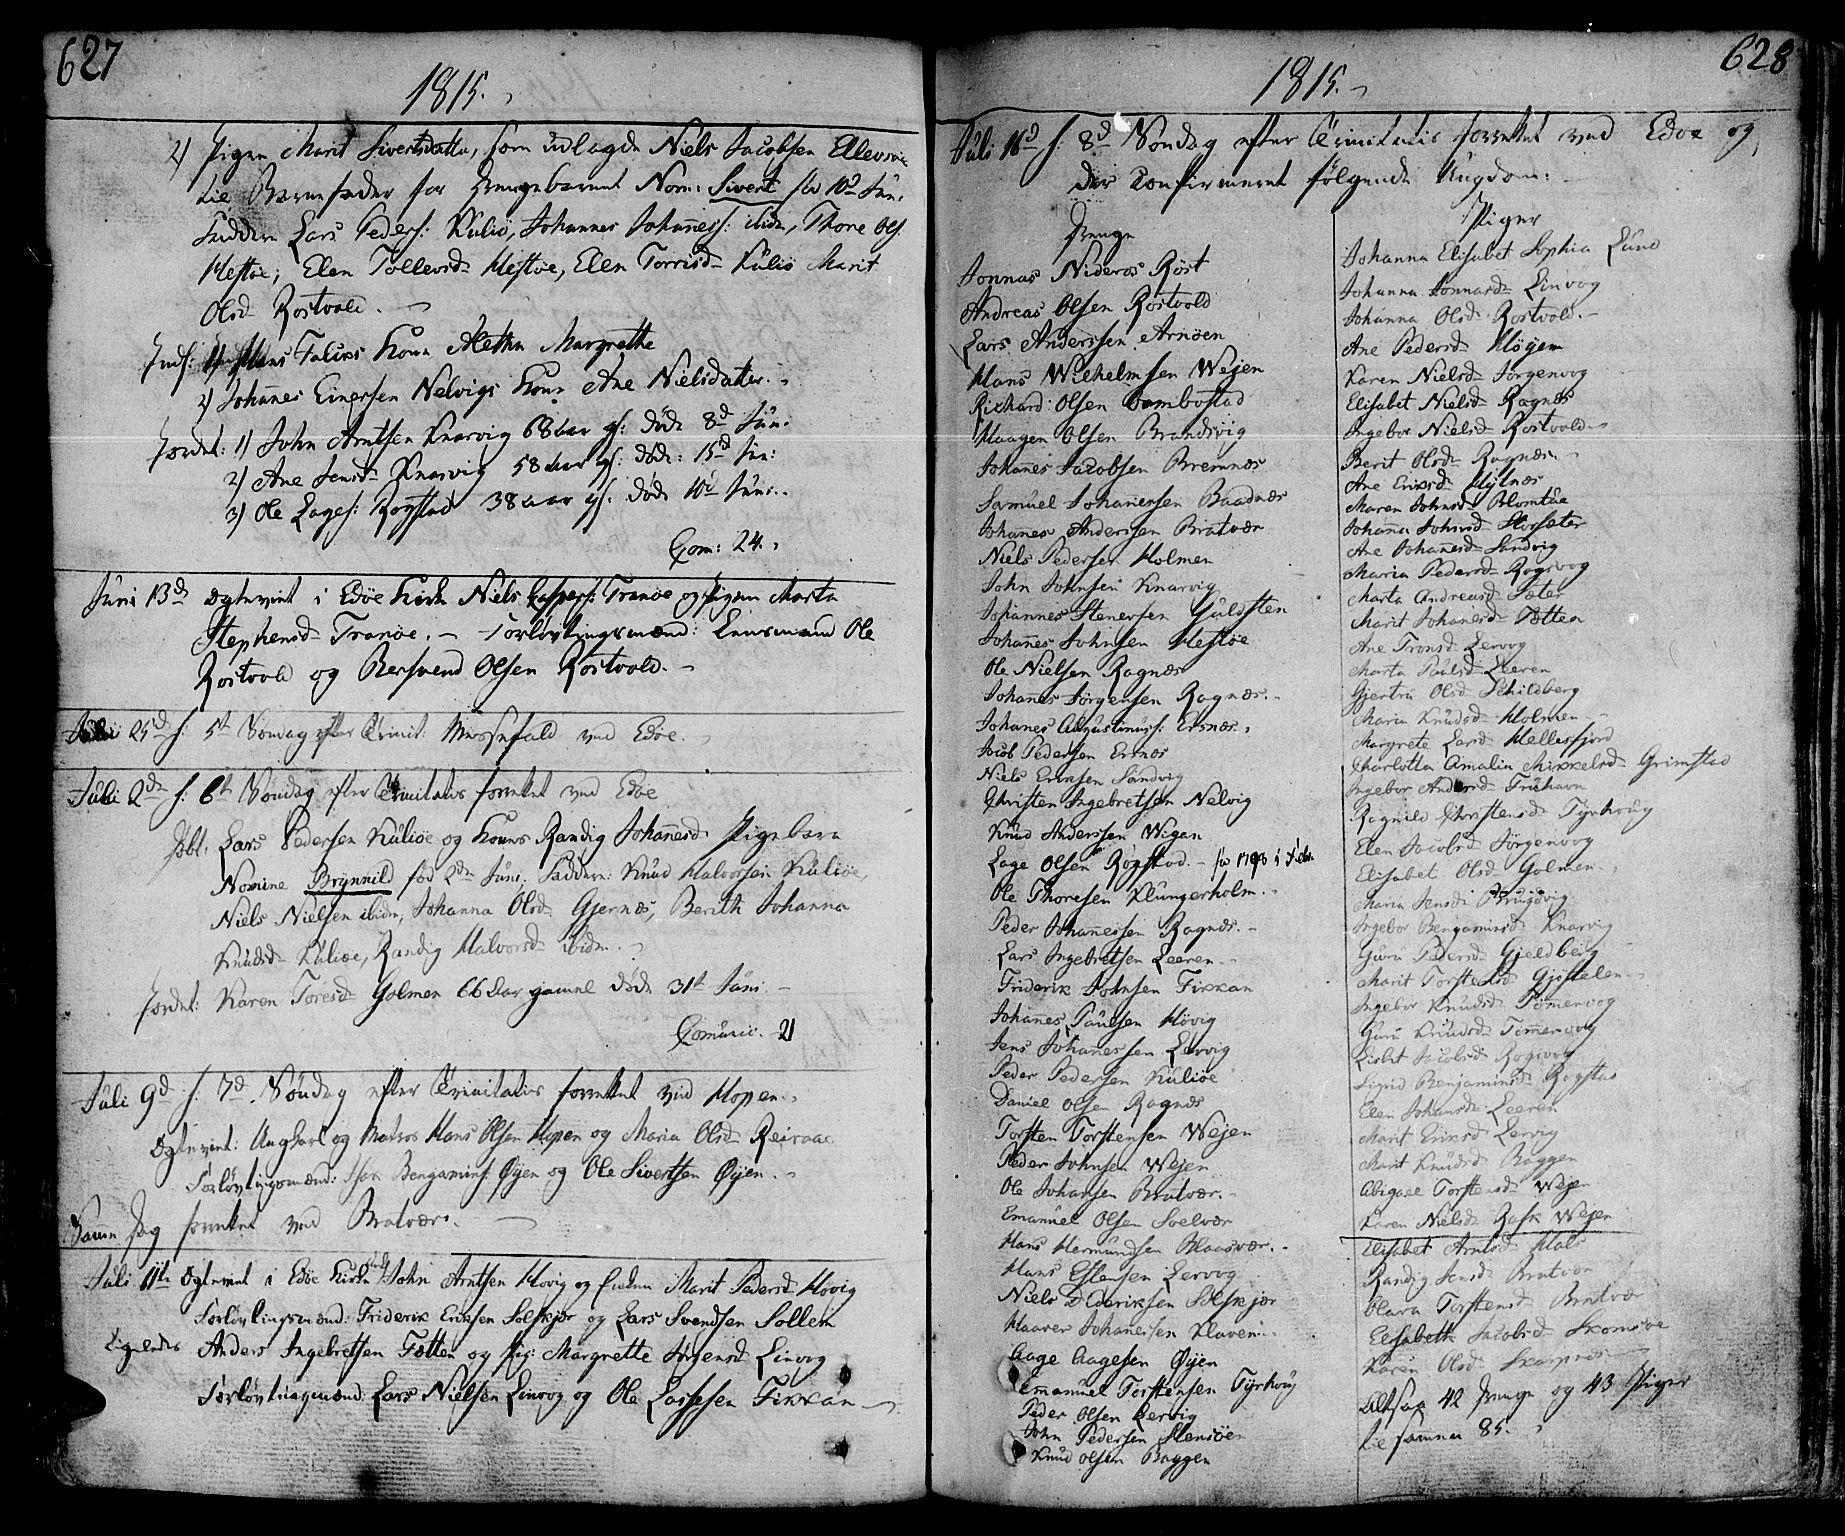 627
1815.
2) Pigen Marit Sivertsdatter, som udlagde Niels Jacobsen
til Barnefader for Drengebarnet Nom: Sivert fød 10d Jun.
Faddere Lars Peders: Kuliø, Johannes Johanness: ibidn, Thore Ols
Hestøe, Elen Tollevsd Hestøe, Elen Torrisd Kuliø Marit
Olsd Rostvold.
Inds: 1) Hans Kone Alethe Margrethe
2) Johanes Einersen Nelvigs Kone Ane Nielsdatter.
Jordet: 1) John Arntsen Knarvig 68 aar gl: døde 8d Jun.
2) Ane Jensd Knarvig 58 aar gl: døde: 15d Jun:
3) Ole Lages: Rogstad 38 aar gl. døde 10d Juni.
Com: 24.
Juni 13d Ægteviet i Edøe Kirke Niels Caspers: Tranøe og Pigen Marta
Stephensd Tranøe. – Forlovtingsmænd: Lensmand Ole
Rostvold og Bersvend Olsen Rostvold. –
25d f. 5t Søndag efter Trinit: Messefald ved Edøe.
Juli 2dn f. 6t Søndag efter Trinitatis forrettet ved Edøe
Døbt: Lars Pedersen Kuliøe og Kones Randig Johanesd Pigebarn
Nomine Brynnild fød 2dn Juni. Faddere: Knud Halvorsen Kuliøe,
Niels Nielsen ibidn, Johanna Olsd Gjernæs, Berith Johanna
Knudsd Kuliøe, Randig Halvorsd ibidn.
Jordet: Karen Toresd Golmen 66 Aar gamel døde 31t Juni. –
Comunic. 21
Juli 9d f. 7d Søndag efter Trinitatis forrettet ved Hopen.
Ægteviet: Ungkarl og Matros Hans Olsen Hopen og Maria Olsd
Forlovtingsmænd: Bengamins: Øÿen og Ole Sivertsen Øÿen.
Samme Dag forrettet ved Bratvær.
Juli 11te Ægteviet i Edøe Kirke John Arntsen Hovig og Enken Marit Pedersd Hovig
Forlovtingsmænd: Friderik Eriksen Solskjær og Lars Svendsen Sollem
Ligeledes Anders Ingebretsen Fætten og Pig: Margrette Jørgensd Linvog
Forlovtingsmænd: Lars Nielsen Linvog og Ole Lassesen Fikkan
628
1815.
Juli 16d f. 8d Søndag efter Trinitatis forrettet ved Edøe og
der Confirmeret følgende Ungdom:
Drenge
Jonnas Nideros Røst
Andreas Olsen Rostvold
Lars Anderssen Arnøen
Hans Wilhelmsen Wejen
Richard Olsen Bombostad
Haagen Olsen Brandsvig
Johanes Jacobsen Bremnæs
Samuel Johanessen Baadnæs
Johanes Andersen Bratvær
Niels Pedersen Holmen
John Johnsen Knarvig
Johannes Stenersen Guldsten
Johanes Johnsen Hestøe
Ole Nielsen Ragnæs
Johanes Jørgensen Ragnæs.
Johanes Augustinuss: Ersnæs.
Jacob Pedersen Ersnæs
Niels Eriksen Sandvig
Christen Ingebretsen Nelvig
Knud Anderssen Wigan
Lage Olsen Rogstad. – fød 1798 i Febr.
Ole Thoresen Klungerholm.
Peder Johanessen Ragnæs. –
Lars Ingebretsen Leeren
Friderik Johnsen Fikkan
Johannes Paulsen Hovig
Jens Johanessen Lervig
Peder Pedersen Kuliøe
Daniel Olsen Ragnæs
Torsten Torstensen Wejen
Peder Johnsen Wejen
Ole Johansen Bratvær.
Emanuel Olsen Soelvær
Hans Hermundsen Haasvær. –
Hans Estensen Lervog
Niels Dideriksen Solskjær
Haaver Johanessen Klaven
Aage Aagesen Øÿen
Emanuel Torstensen Tyrhoug
Peder Olsen Lervig
John Pedersen Stensøen
Knud Olsen Baggen
Piger
Johanna Elisabet Sophia Lund
Johanna Jonnasd Linvog
Johanna Olsd Rostvold. –
Ane Pedersd Høgem
Karen Nielsd Jørgenvog
Elisabet Nielsd Ragnæs
Ingebor Nielsd Rostvold
Berit Olsd Ragnæs
Ane Eriksd
Maren Johnsd Blomtue
Johanna Johnsd Storsæter
Ane Johanesd Sandvig
Maria Pedersd Rogsvog
Marta Andreasd Sæter
Marit Johanesd Fætten
Ane Tronsd Lervog
Marta Paulsd Leeren
Gjertru Olsd Schildberg
Maria Knudsd Holmen
Margrete Larsd Hellesfjord
Charlotta Amalia Mikkelsd Grimstad
Ingebor Andersd Fruhavn
Ragnild Christensd Tyrhoug
Elen Jacobsd Jørgenvog
Elisabet Olsd Golmen
Maria Jensd
Ingebor Bengaminsd Knarvig
Guru Pedersd Gjeldberg
Marit Torstensd Gjøstelen
Ingebor Knudsd Tømervog
Guru Knudsd Tømervog
Lisbet Jacobsd Rogsvog
Sigrid Benjaminsd Rogstad
Elen Johansd Leeren
Marit Eriksd Lervig
Marit Knudsd Baggen
Abigael Torstensd Wejen
Karen Nielsd Rask Wejen
Elisabet Arntsd Hals
Randig Jensd Bratvær
Clara Torstensd Bratvær
Elisabeth Jacobsd Skomsøe
Karen Olsd
Altsaa 42 Drenge og 43 Piger
tilsamen 85.